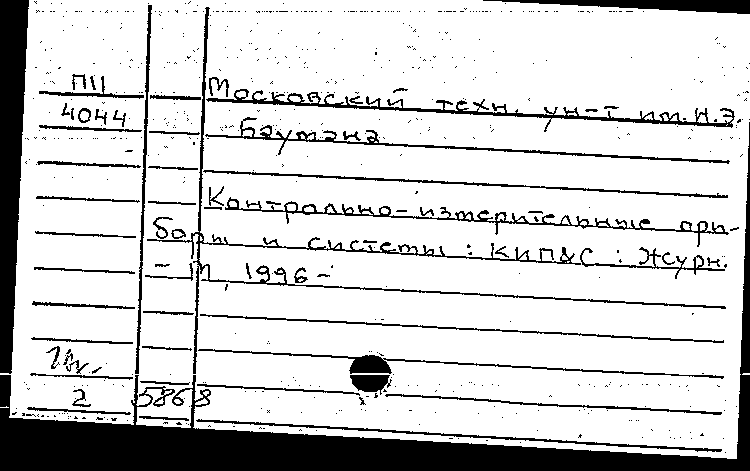 П11
4044
Московский техн. ун-т им. Н.Э.
Баумана
Контрольно-измерительные при-
боры и системы : КИП&С : Журн.
- М, 1996 -
2 5868